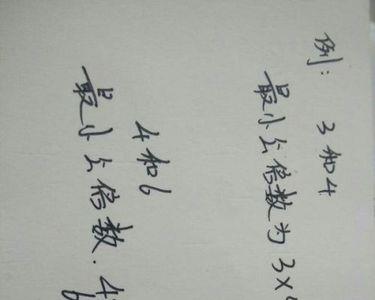 例: 3和4
最小公倍数为3×
4和6
最小公倍数.4
6